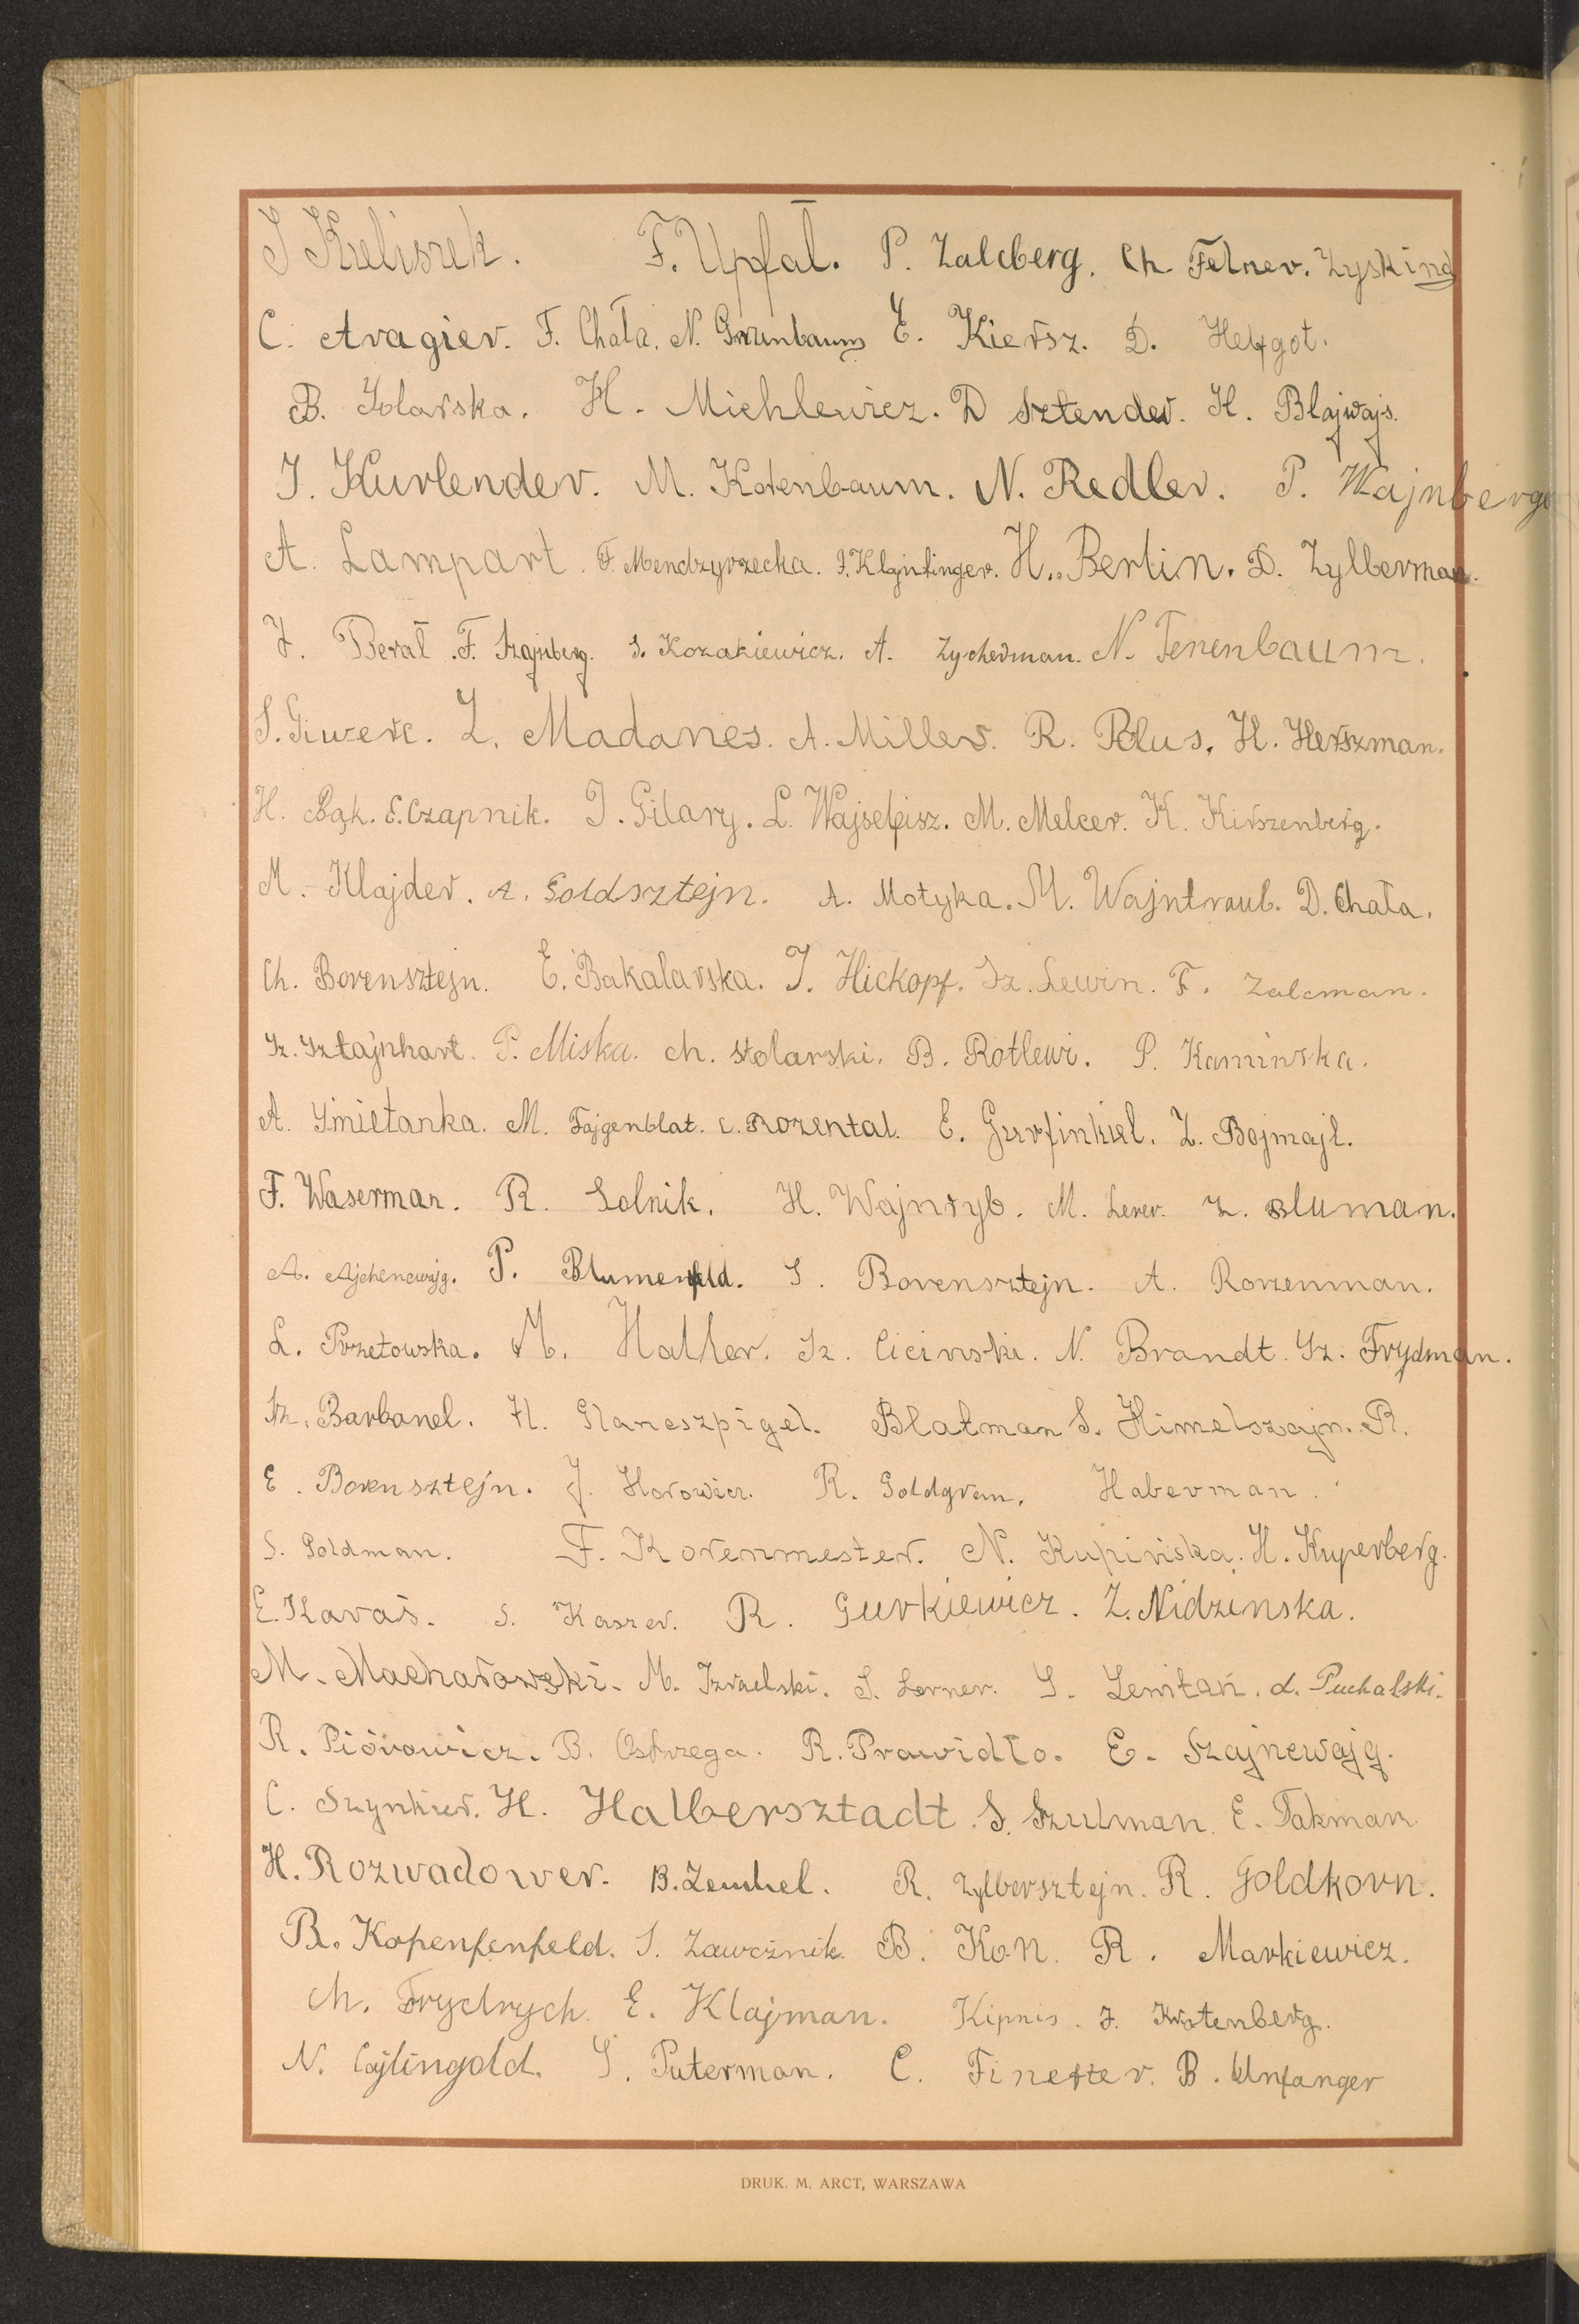 J Kieliszek. F. Upfał. P. Zalcberg. Ch. Felner. Zyskind
C. Aragier. F. Chała. N. Grunbaum E. Kiersz. D. Helfgot.
B. Stolarska. H. Michlewicz. D Sztender. H. Blajwajs.
J. Kurlender. M. Korenbaum. N. Redler. P. Wajnberg
A. Lampart. F. Mendzyrzecka. J. Klajnfinger. H. Berlin. D. Zylberman.
J. Berał. F. Szajnberg. S. Kozakiewicz. A. Zycherman. N. Tenenbaum.
S. Giwerc. Z. Madanes. A. Miller. R. Polus. H. Herszman.
H. Bąk. E. Czapnik. J. Gilary. L. Wajselfisz. M. Melcer. K. Kirszenberg.
M. Klajder. A. Goldsztejn. A. Motyka. M. Wajntraub. D. Chała.
Ch. Borensztejn. E. Bakalarska. J. Hickopf. Sz. Lewin. F. Zalcman.
Sz. Sztajnhart. P. Miska. Ch. Stolarski. B. Rotlewi. P. Kamińska.
A. Śmietanka. M. Fajgenblat. C. Rozental. E. Gurfinkiel. Z. Bojmajl.
F. Waserman. R. Solnik. H. Wajnryb. M. Lerer. Z. Bluman.
A. Ajchencwajg. P. Blumenfeld. S. Borensztejn. A. Rozenman.
L. Przetowska. M. Haller. Sz. Cicinski. N. Brandt. Sz. Frydman.
Sz. Barbanel. H. Glancszpigel. Blatman S. Himelszajn. R.
E. Borensztejn. J. Horowicz. R. Goldgran. Haberman.
S. Goldman. F. Korenmester. N. Kupińska. H. Kuperberg.
E. Karaś. S. Kaszer. R. Gurkiewicz. Z. Nidzińska.
M. Macharowski. M. Izraelski. S. Lerner. S. Lewitan. L. Puchalski.
R. Piórowicz. B. Ostrzega. R. Prawidło. E. Szajnewajg.
C. Szynkier. H. Halbersztadt. S. Szulman. E. Fakman
H. Rozwadower. B. Zemel. R. Zylbersztejn. R. Goldkorn.
R. Kopenfenfeld. S. Zawcznik. B. Kon. R. Markiewicz.
Ch. Frydrych. E. Klajman. Kipnis. J. Krotenberg.
N. Cajlingold. S. Puterman. C. Finester. B. Unfanger
DRUK. M. ARCT, WARSZAWA